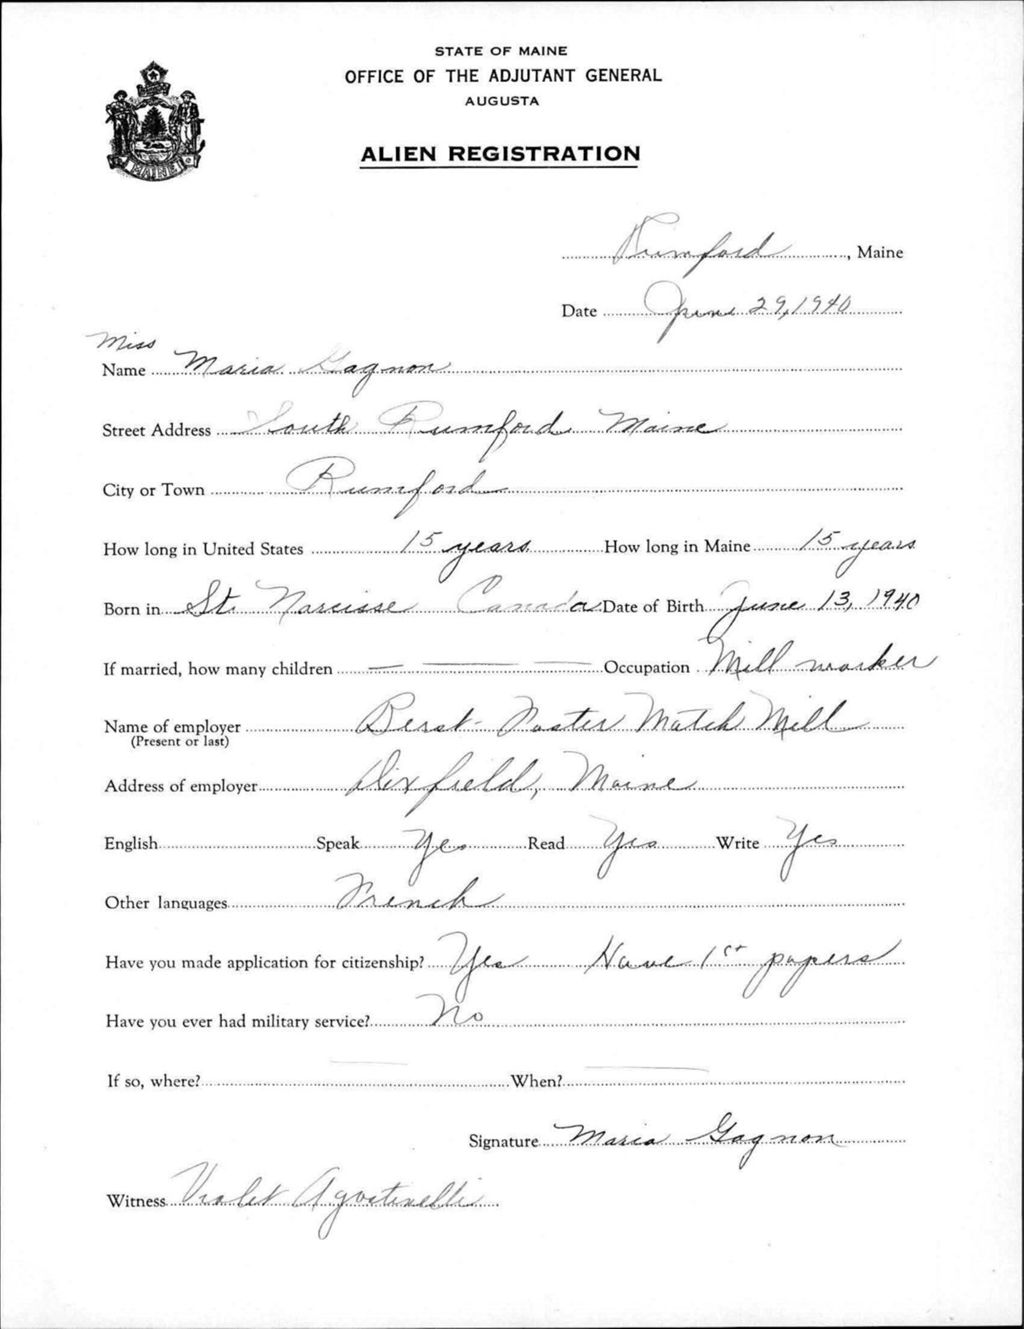 STATE OF MAINE
OFFICE OF THE ADJUTANT GENERAL
AUGUSTA
ALIEN REGISTRATION
MAINE
Rumford, Maine
Date June 29, 1940
Miss
Name Maria Gagnon
Street Address South Rumford Maine
City or Town Rumford
How long in United States 15 years How long in Maine 15 years
Born in St. Narcisse Canada Date of Birth June 13, 1940
If married, how many children — — — Occupation Mill worker
Name of employer Berst-Foster Match Mill
(Present or last)
Address of employer Dixfield, Maine
English Speak Yes Read Yes Write Yes
Other languages French
Have you made application for citizenship? Yes Have 1st papers
Have you ever had military service? No
If so, where? — When? —
Signature Maria Gagnon
Witness Violet Agostinelli